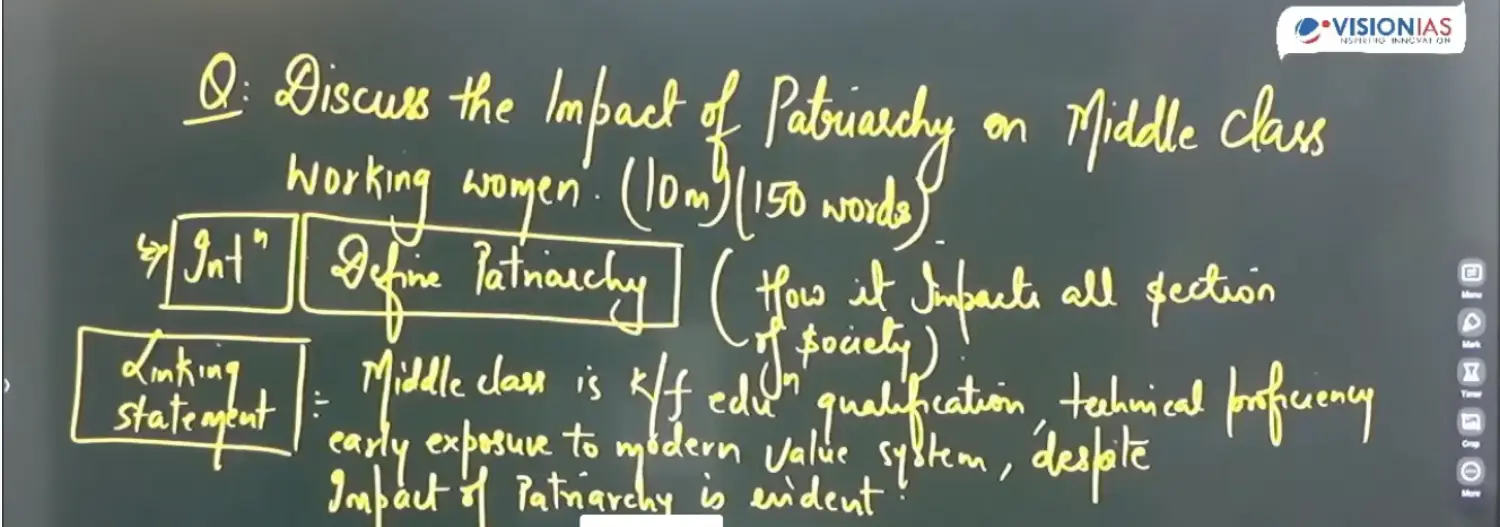 VISIONIAS
INSPIRING INNOVATION
Q: Discuss the Impact of Patriarchy on Middle class
working women. (10m) (150 words)
Intⁿ Define Patriarchy ( How it Impacts all section
of society)
Linking
statement :- Middle class is k/f eduⁿ qualification, technical proficiency
early exposure to modern value system, despite
Impact of Patriarchy is evident.
Menu
Mark
Timer
Crop
More